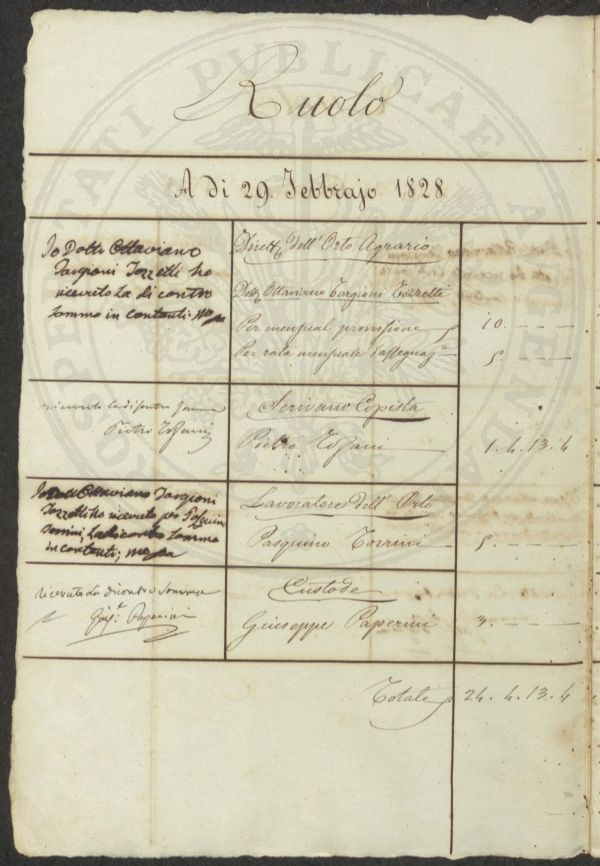 Ruolo
A di 29. Febbrajo 1828
Io Dott. Ottaviano
Targioni Tozzetti ho
ricevuto la di contro
somma in contanti: Mo pa
Dirett. dell' Orto Agrario
Dott. Ottaviano Targioni Tozzetti
Per mensual provisione 10. — — —
Per rata mensuale d'assegnaz.e 5. — — —
ricevuto la di contro somma
Pietro Tofani
Scrivano Copista
Pietro Tofani 1. 4. 13. 4
Io Dott. Ottaviano Targioni
Tozzetti ho ricevuto per Pasquino
Torrini, la di contro somma
in contanti; Mo pa
Lavoratore dell' Orto
Pasquino Torrini 5. — — —
ricevuto la di contro somma
Gius.e Paperini
Custode
Giuseppe Paperini 3. — — —
Totale 24. 4. 13. 4